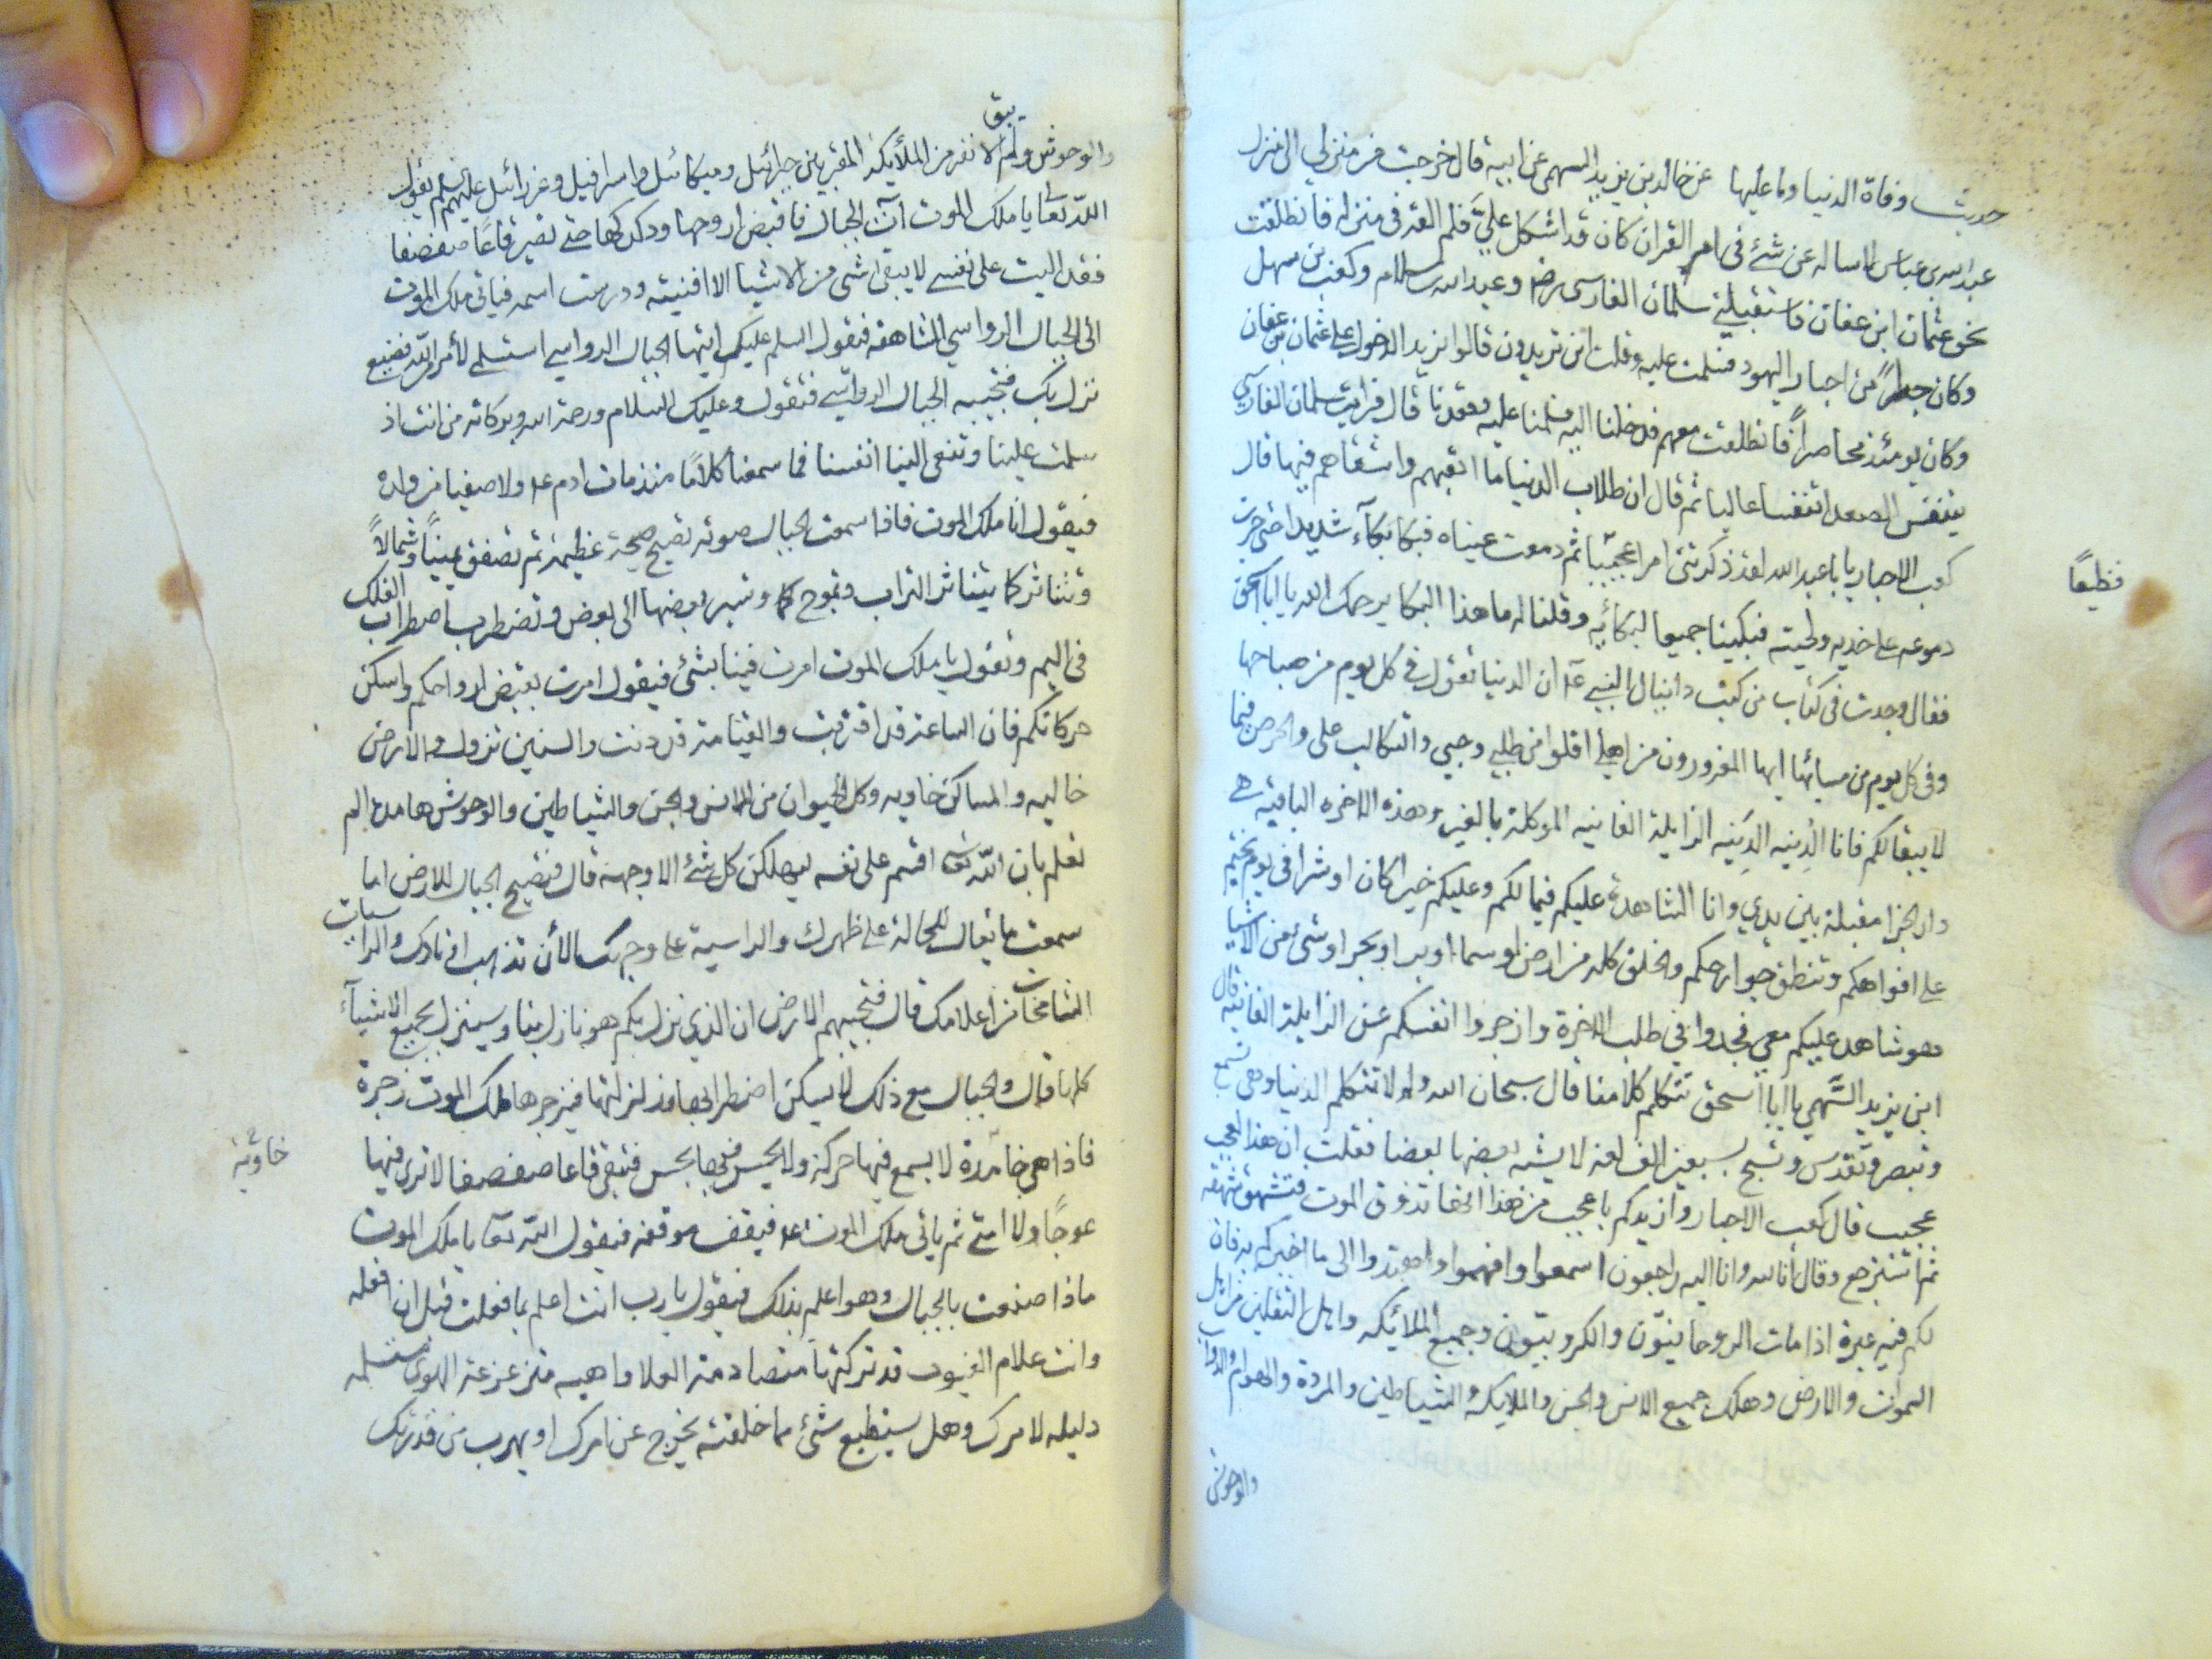 حديث وفاة الدنيا وما عليها عن خالد بن يزيد السهمى عن ابيه قال خرجت من منزلي الى منزل
عبد الله بن عباس لاساله عن شئ فى امر القران كان قد اشكل عليّ فلم القه فى منزله فانطلقت
نحو عثمان ابن عفان فاستقبلنى سلمان الفارسى رضه وعبد الله سلام وكعب بن سهل
وكان من احبار اليهود فسلمت عليه وقلت اين تريدون قالوا نريد الدخول على عثمان بن عفان
وكان يومئذ محاصراً فانطلقت معهم فدخلنا اليه فسلمنا عليه وقعدنا قال فرايت سلمان الفارسي
يتنفس الصعدا تنفسا عاليا ثم قال ان طلاب الدنيا ما اتعبهم واشقاهم فيها قال
كعب الاحبار يابا عبد الله لقد ذكرتنى امرا عجيبا ثم دمعت عيناه فبكا بكآء شديدا حتى جرت
فظيعاً
دموعه على خديه ولحيته فبكينا جميعا لبكائه وقلنا له ما هذا البكا يرحمك الله يا ابا اسحق
فقال وجدت فى كتاب من كتب دانيال النبي عم ان الدنيا تقول فى كل يوم من صباحها
وفى كل يوم من مسائها ايها المغرورون من اهلي اقلوا من طلبي وحبي والتكالب على والحرص فيما
لا يبقا لكم فانا الدنيه الدنيه الزايلة الفانيه الموكلة بالغير وهذه الاخره الباقيه هي
دار الجزا مقبلة بين يدي وانا الشاهدة عليكم فيما لكم وعليكم خيرا كان او شرا فى يوم يختم
على افواهكم وتنطق جوارحكم والخلق كله من ارض او سما او بر او بحر او شئ من الاشيا
وهو شاهد عليكم معي فجدوا في طلب الاخرة وازجروا انفسكم عن الزايلة الفانيه قال
ابن يزيد السَّهمي يا ابا اسحق تتكلم كلامنا قال سبحان الله ولم لا تتكلم الدنيا وهى تسمع
وتبصر وتقدس وتسبح بسبعين الف لغة لا يشبه بعضها بعضا فقلت ان هذا لعجب
عجيب قال كعب الاحبار وازيدكم باعجب من هذا انها تذوق الموت فتشهق شهقه
ثم استرجع وقال انا لله وانا اليه راجعون اسمعوا وافهموا واهتدوا الى ما اخبركم به فان
لكم فيه عبرة اذا مات الروحانيّون والكروبيّون وجميع الملائكه واهل الثقلين من اهل
السموات والارض وهلك جميع الانس والجن والملايكه والشياطين والمردة والهوام والدواب
والوحوش
والوحوش ولم يبق الا نفر من الملائكة المقربين جبرائيل وميكائيل واسرافيل وعزرائيل عليهم السلم يقول
الله تعا يا ملك الموت ائت الجبال فاقبض اروحها ودكدكها حتى تصير قاعًا صفصفا
فقد اليت على نفسى لا يبقى شى من الاشيا الا افنيته ودرست اسمه فياتى ملك الموت
الى الجبال الرواسي الشاهقه فيقول السلم عليكم ايتها الجبال الرواسي استسلمي لأمر الله
نزل بك فتجيبه الجبال الرواسي فتقول وعليك السلام ورحمة الله وبركاته من انت اذ
سلمت علينا وتنعى الينا انفسنا فما سمعنا كلامًا منذ مات ادم عم ولا صفيا من ولده
فيقول انا ملك الموت فاذا سمعت الجبال صوته تصيح صيحة عظيمة ثم تصفق يميناً وشمالاً
وتتناثر كما يتناثر التراب وتموج كما وتسير بعضها الى بعض وتضطرب اضطراب الفلك
فى اليم وتقول يا ملك الموت امرت فينا بشئ فيقول امرت بقبض ارواحكم واسكن
حركاتكم فان الساعة قد اقتربت والقيامة قد دنت والسنين تزول والارض
خاليه والمساكن خاويه وكل الحيوان من الانس والجن والشياطين والوحوش هامده الم
تعلم بان الله تعا اقسم على نفسه ليهلكن كل شئ الا وجهه قال فتصيح الجبال للارض اما
سمعت ما يقال للحالة على ظهرك والراسية على وجهك الأن تذهب اوتادك والراسيات
الشامخات من اعلامك قال فتجيبهم الارض ان الذي نزل بكم هو نازل بنا وسينزل بجميع الاشيآء
كلها قال والجبال مع ذلك لا يسكن اضطرابها وزلزلتها فيزجرها ملك الموت زجرة
فاذا هى خامدة لا يسمع فيها حركة ولا يحس فتبقى قاعا صفصفا لا ترى فيها
خاوية
عوجًا ولا امتى ثم ياتى ملك الموت عم فيقف موقفه فيقول الله تعا يا ملك الموت
ماذا صنعت بالجبال وهو اعلم بذلك فيقول يا رب انت اعلم بما فعلت قبل ان افعله
وانت علام الغيوب قد تركتها متصادمة العلا واهيه متزعزعة الهوى مستسلمه
ذليله لامرك وهل يستطيع شئ مما خلقته يخرج عن امرك او يهرب من قدرتك